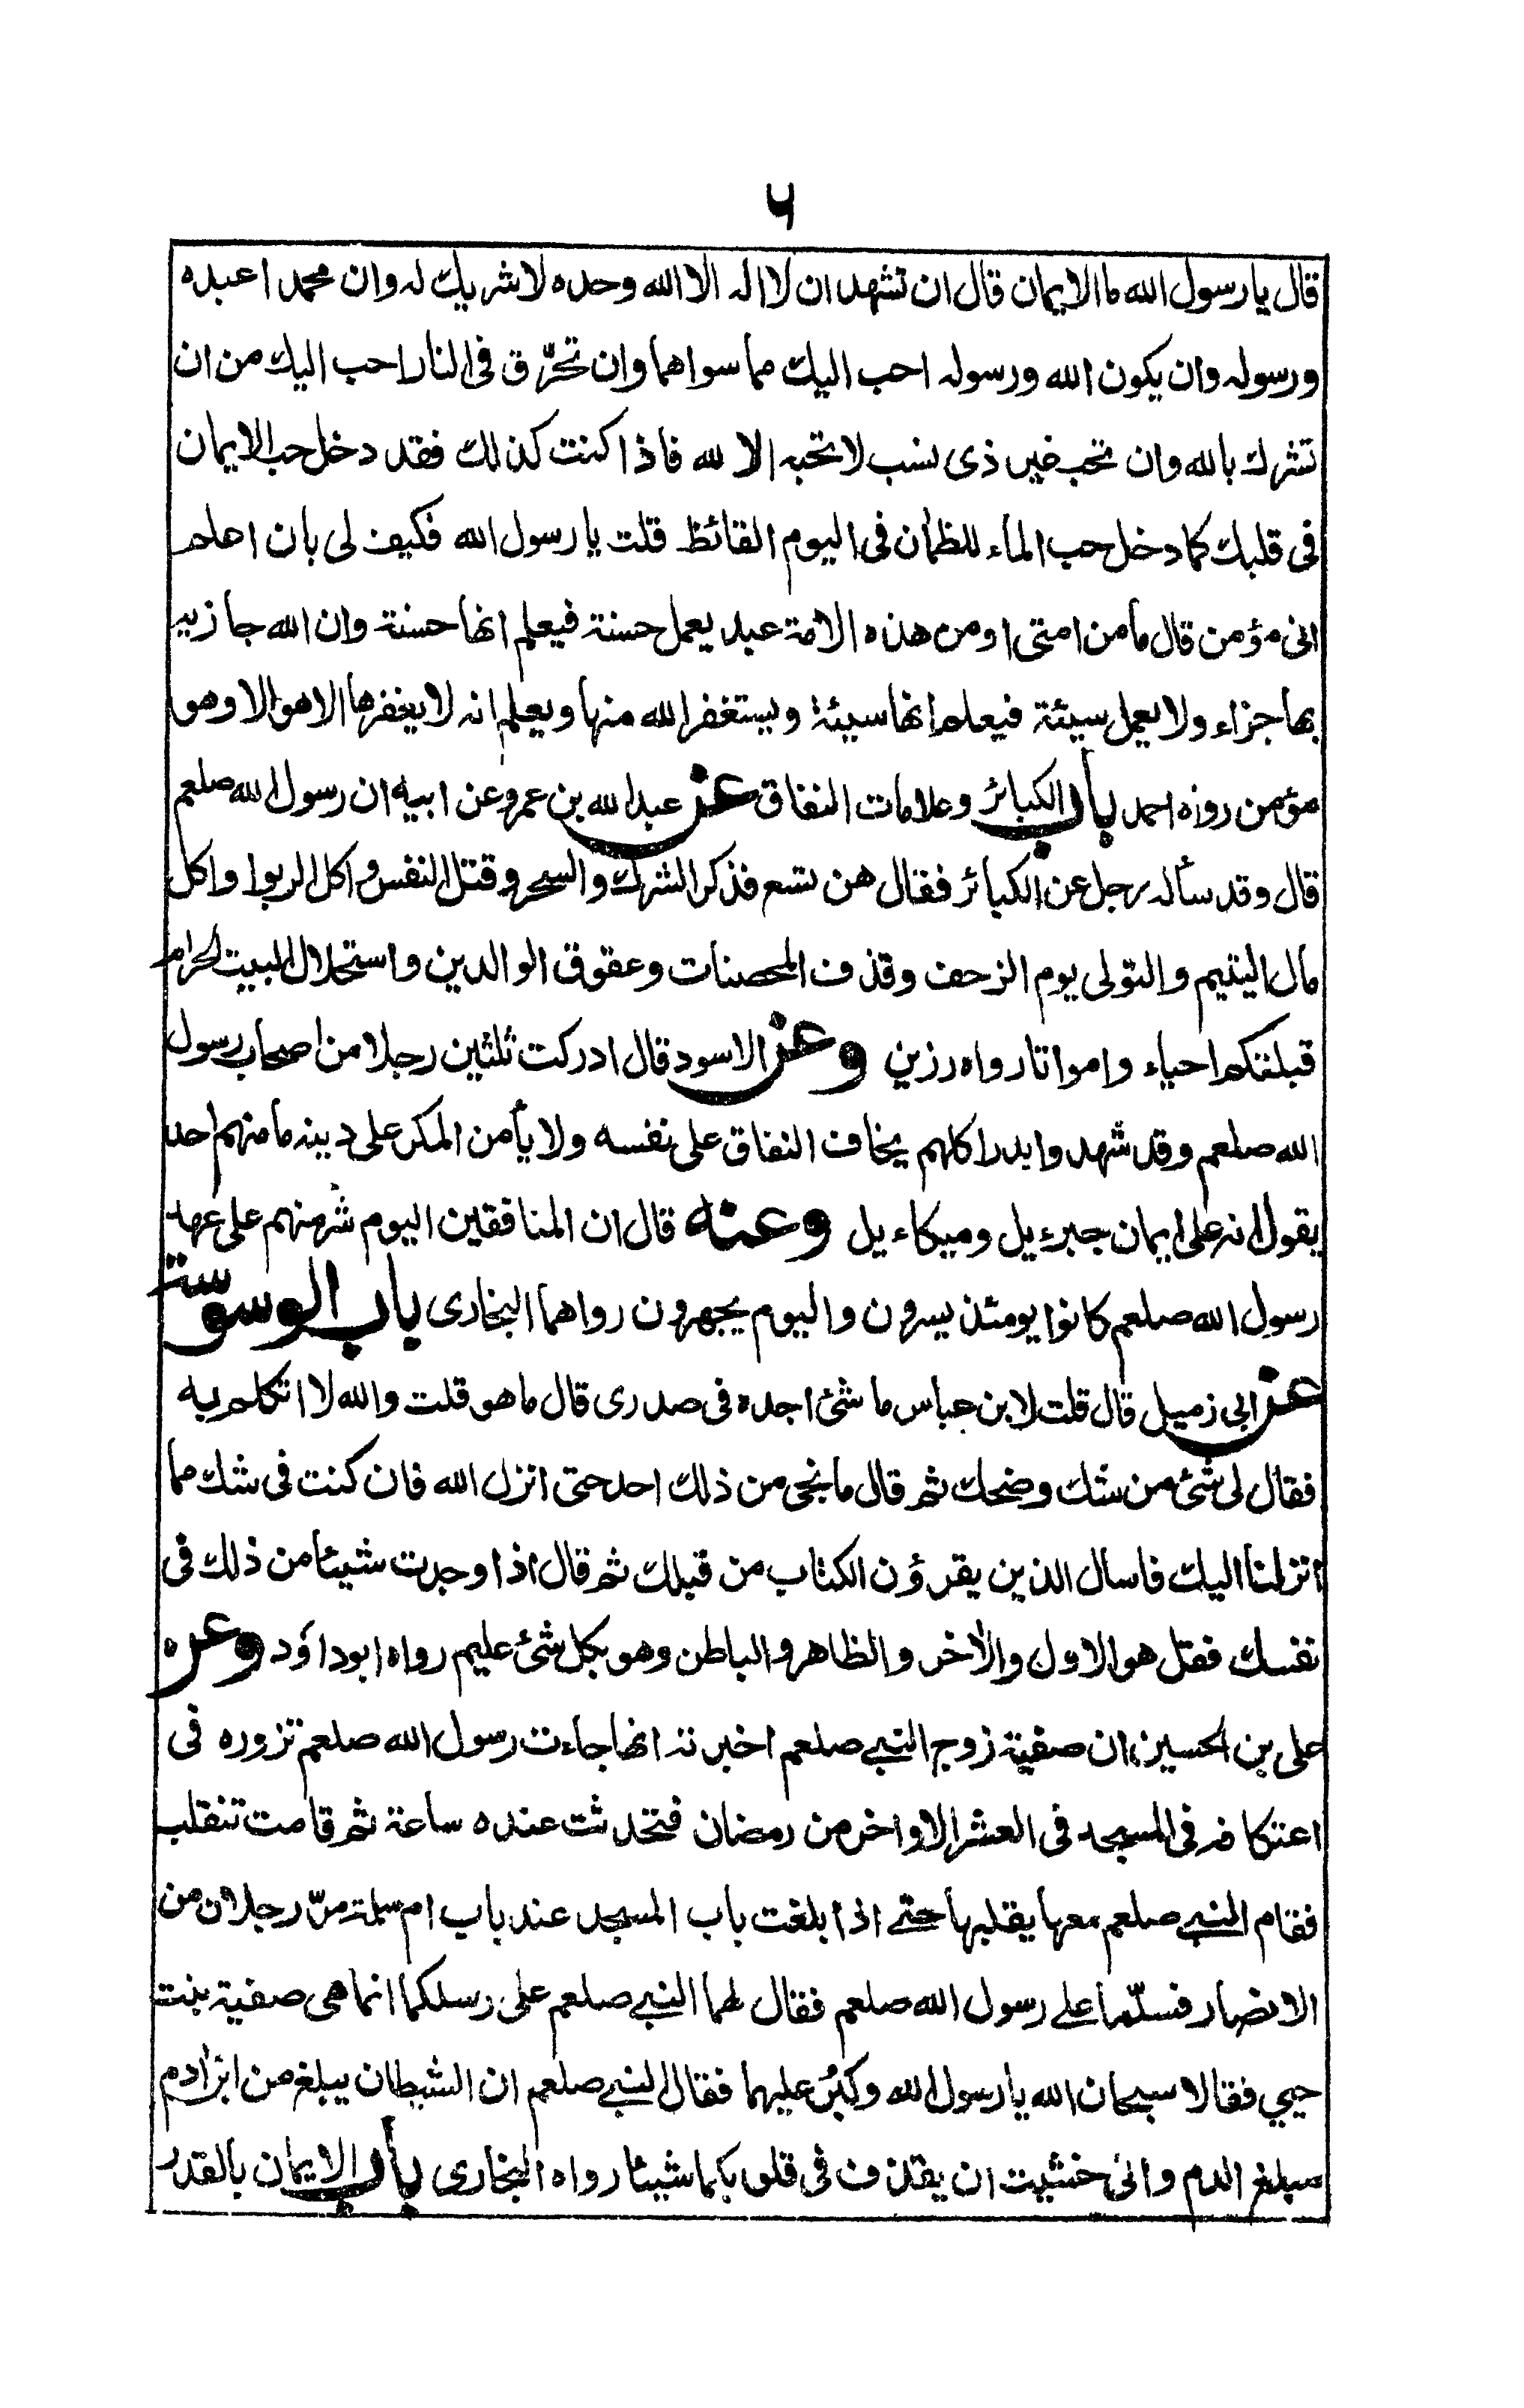 ۶
قال يا رسول الله ما الايمان قال ان تشهد ان لا اله الا الله وحده لا شريك له وان محمدا عبده
ورسوله وان يكون الله ورسوله احب اليك مما سواهما وان تحرّق فى النار احب اليك من ان
تشرك بالله وان تحب غير ذى نسب لا تحبه الا لله فاذا كنت كذلك فقد دخل حب الايمان
فى قلبك كما دخل حب الماء للظمأن فى اليوم القائظ قلت يا رسول الله فكيف لى بان اعلم
انى مؤمن قال ما من امتى او من هذه الامة عبد يعمل حسنة فيعلم انها حسنة وان الله جازيه
بها جزاء ولا يعمل سيئة فيعلم انها سيئة ويستغفر الله منها ويعلم انه لا يغفرها الا هو الا وهو
مؤمن رواه احمد باب الكبائر وعلامات النفاق عن عبد الله بن عمرو عن ابيه ان رسول الله صلعم
قال وقد سأله رجل عن الكبائر فقال هن تسع فذكر الشرك والسحر وقتل النفس واكل الربوا واكل
مال اليتيم والتولى يوم الزحف وقذف المحصنات وعقوق الوالدين واستحلال البيت الحرام
قبلتكم احياء وامواتا رواه رزين وعن الاسود قال ادركت ثلثين رجلا من اصحاب رسول
الله صلعم وقد شهدوا بدرا كلهم يخاف النفاق على نفسه ولا يأمن المكر على دينه ما منهم احد
يقول انه على ايمان جبرءيل وميكاءيل وعنه قال ان المنافقين اليوم شر منهم على عهد
رسول الله صلعم كانوا يومئذ يسرون واليوم يجهرون رواهما البخارى باب الوسوسة
عن ابى زميل قال قلت لابن عباس ما شئ اجده فى صدرى قال ما هو قلت والله لا اتكلم به
فقال لى شئ من شك وضحك ثم قال ما نجى من ذلك احد حتى انزل الله فان كنت فى شك مما
انزلنا اليك فاسال الذين يقرؤن الكتاب من قبلك ثم قال اذا وجدت شيئا من ذلك فى
نفسك فقل هو الاول والاٰخر والظاهر والباطن وهو بكل شئ عليم رواه ابوداؤد وعن
على بن الحسين ان صفية زوج النبى صلعم اخبرته انها جاءت رسول الله صلعم تزوره فى
اعتكافه فى المسجد فى العشر الاواخر من رمضان فتحدثت عنده ساعة ثم قامت تنقلب
فقام النبى صلعم معها يقلبها حتى اذا بلغت باب المسجد عند باب ام سلمة مرّ رجلان من
الانصار فسلّما على رسول الله صلعم فقال لهما النبى صلعم على رسلكما انما هى صفية بنت
حيي فقالا سبحان الله يا رسول الله وكبُر عليهما فقال النبى صلعم ان الشيطان يبلغ من ابن اٰدم
مبلغ الدم وانى خشيت ان يقذف فى قلوبكما شيئا رواه البخارى باب الايمان بالقدر